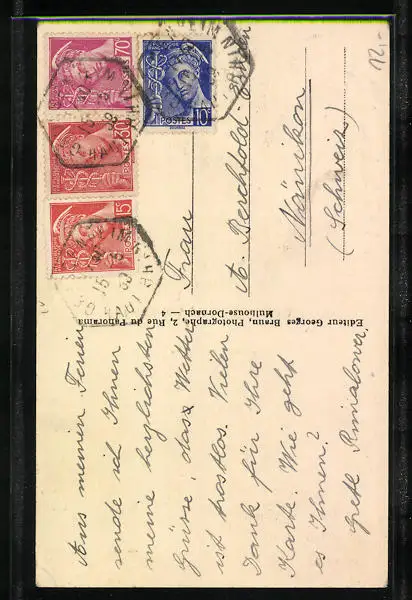 Aus meinen Ferien
sende ich Ihnen
meine herzlichsten
Grüsse, dass Wetter
ist trostlos. Vielen
Dank für Ihre
Karte. Wie geht
es Ihnen?
Grete Rimalower.
Editeur Georges Braun, Photographe, 2, Rue du Panorama
Mulhouse-Dornach — 4
Frau
A. Berchtold-
Nänikon
(Schweiz)
70
30
15
POSTES 10c
12.-